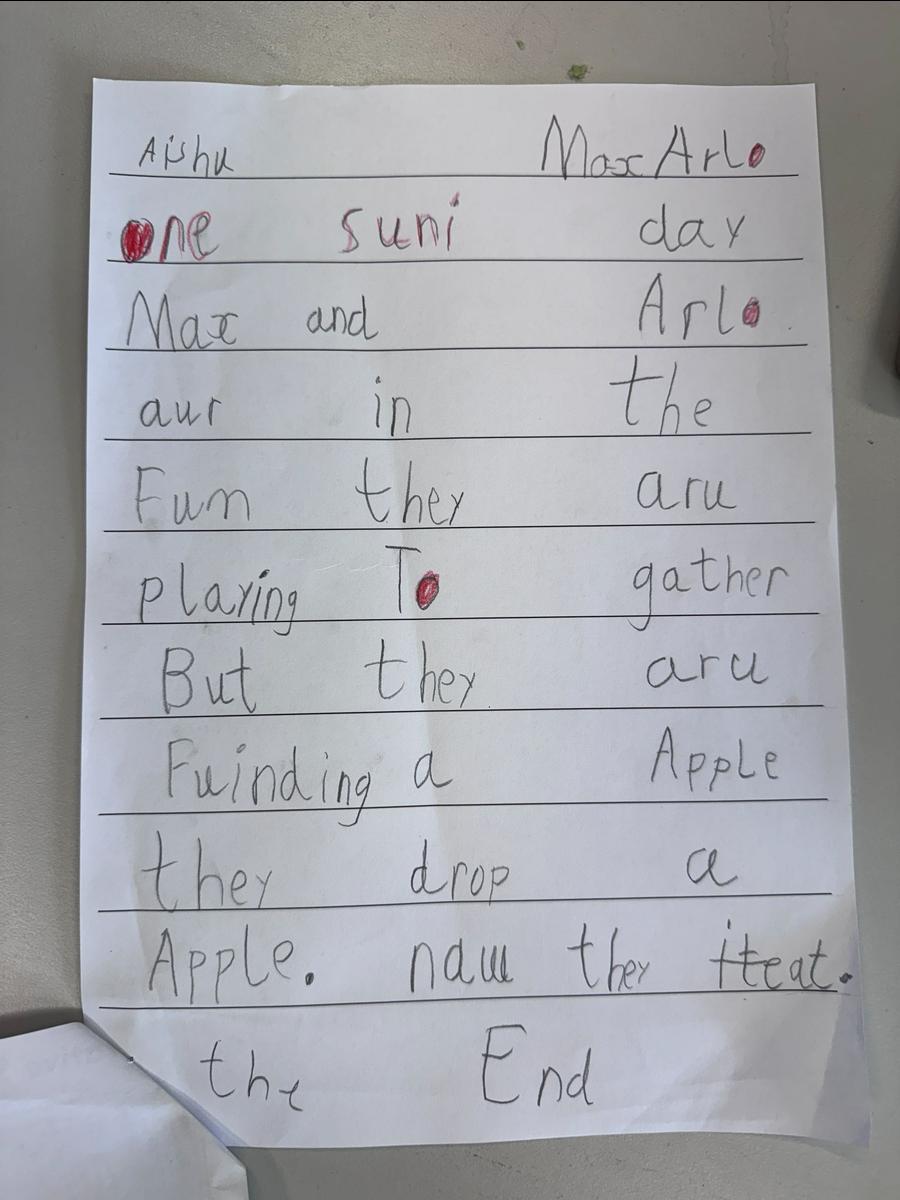 Aishu Max Arlo
one suni day
Max and Arlo
aur in the
Fum they aru
playing To gather
But they aru
Fuinding a Apple
they drop a
Apple. naw they iteat.
the End